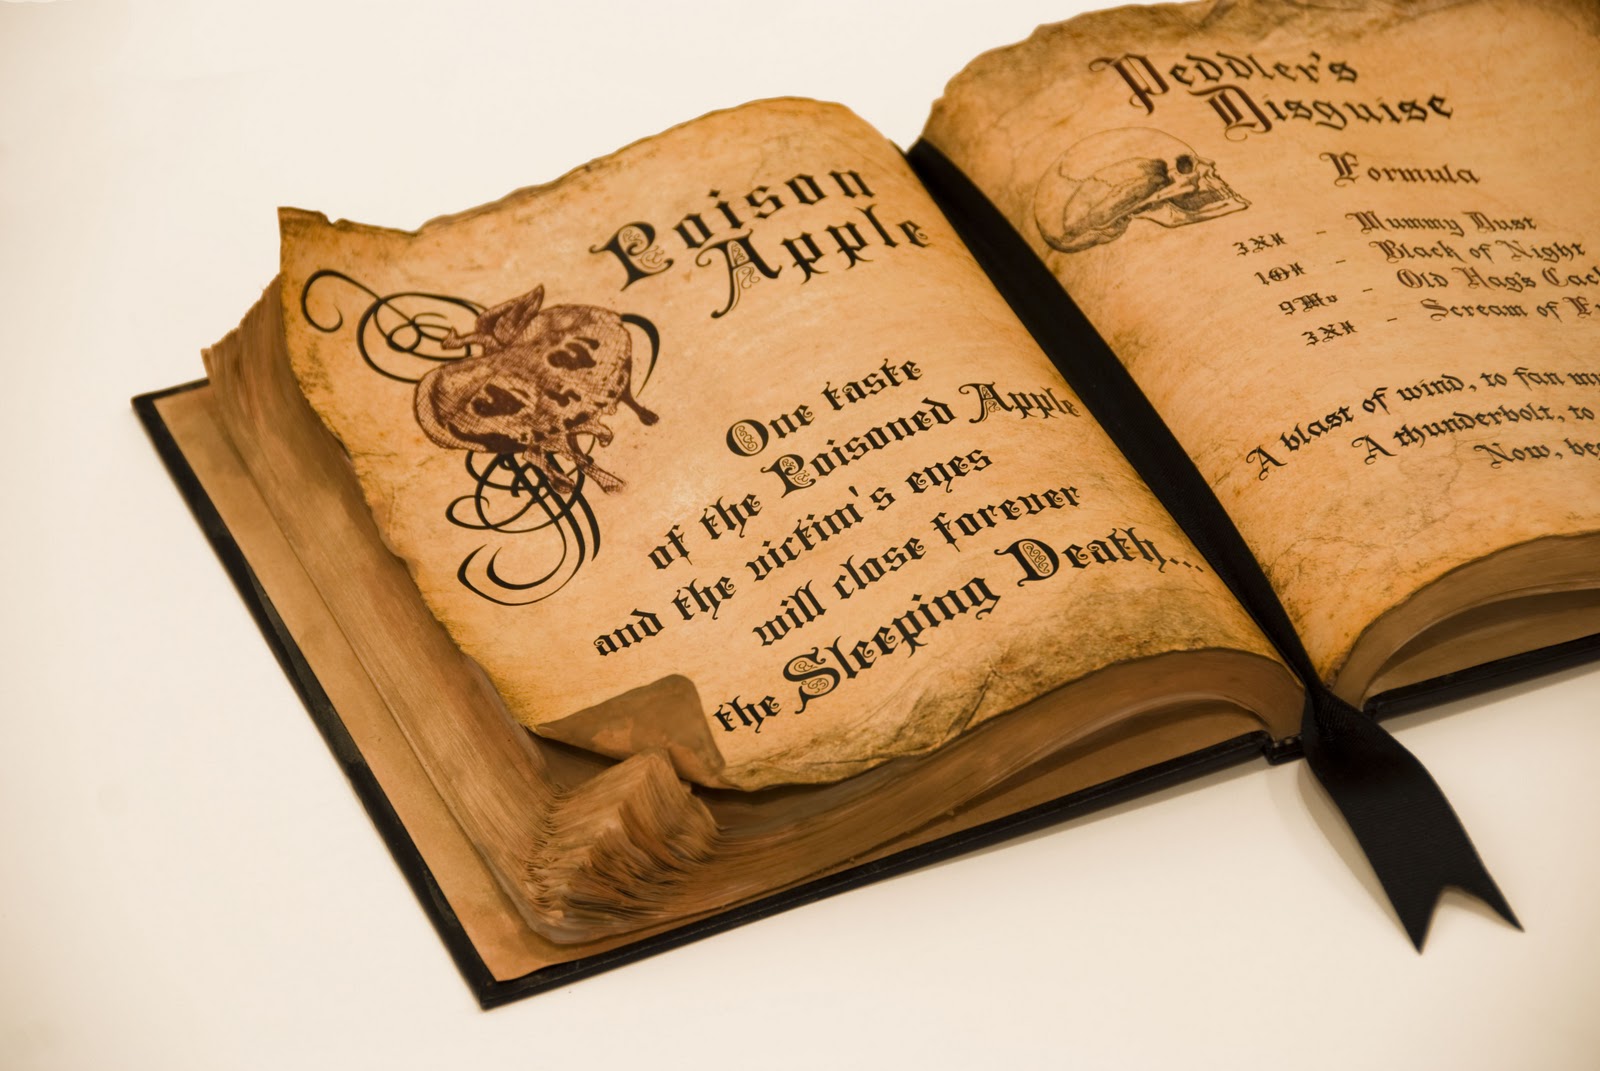 Poison
Apple
One taste
of the Poisoned Apple
and the victim's eyes
will close forever
the Sleeping Death...
Peddler's
Disguise
Formula
- Mummy Dust
- Black of Night
- Old Hag's
- Scream of
A blast of wind, to fan
A thunderbolt, to
Now,